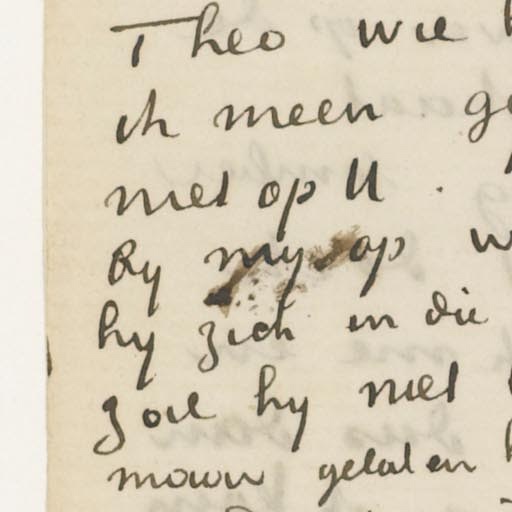 Theo wie
ik meen
niet op U.
By my op
hy zich in die
zoil hy niet
mowu gelaten